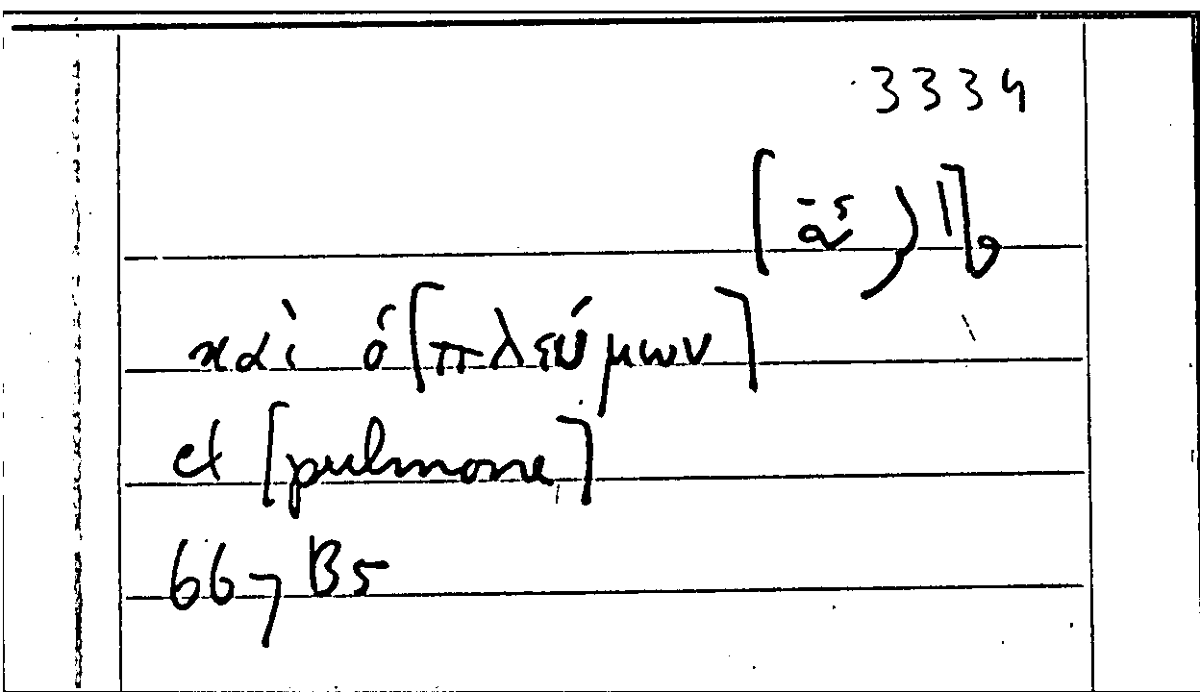 3334
καὶ ὁ [πλεύμων]
et [pulmone]
667 B5